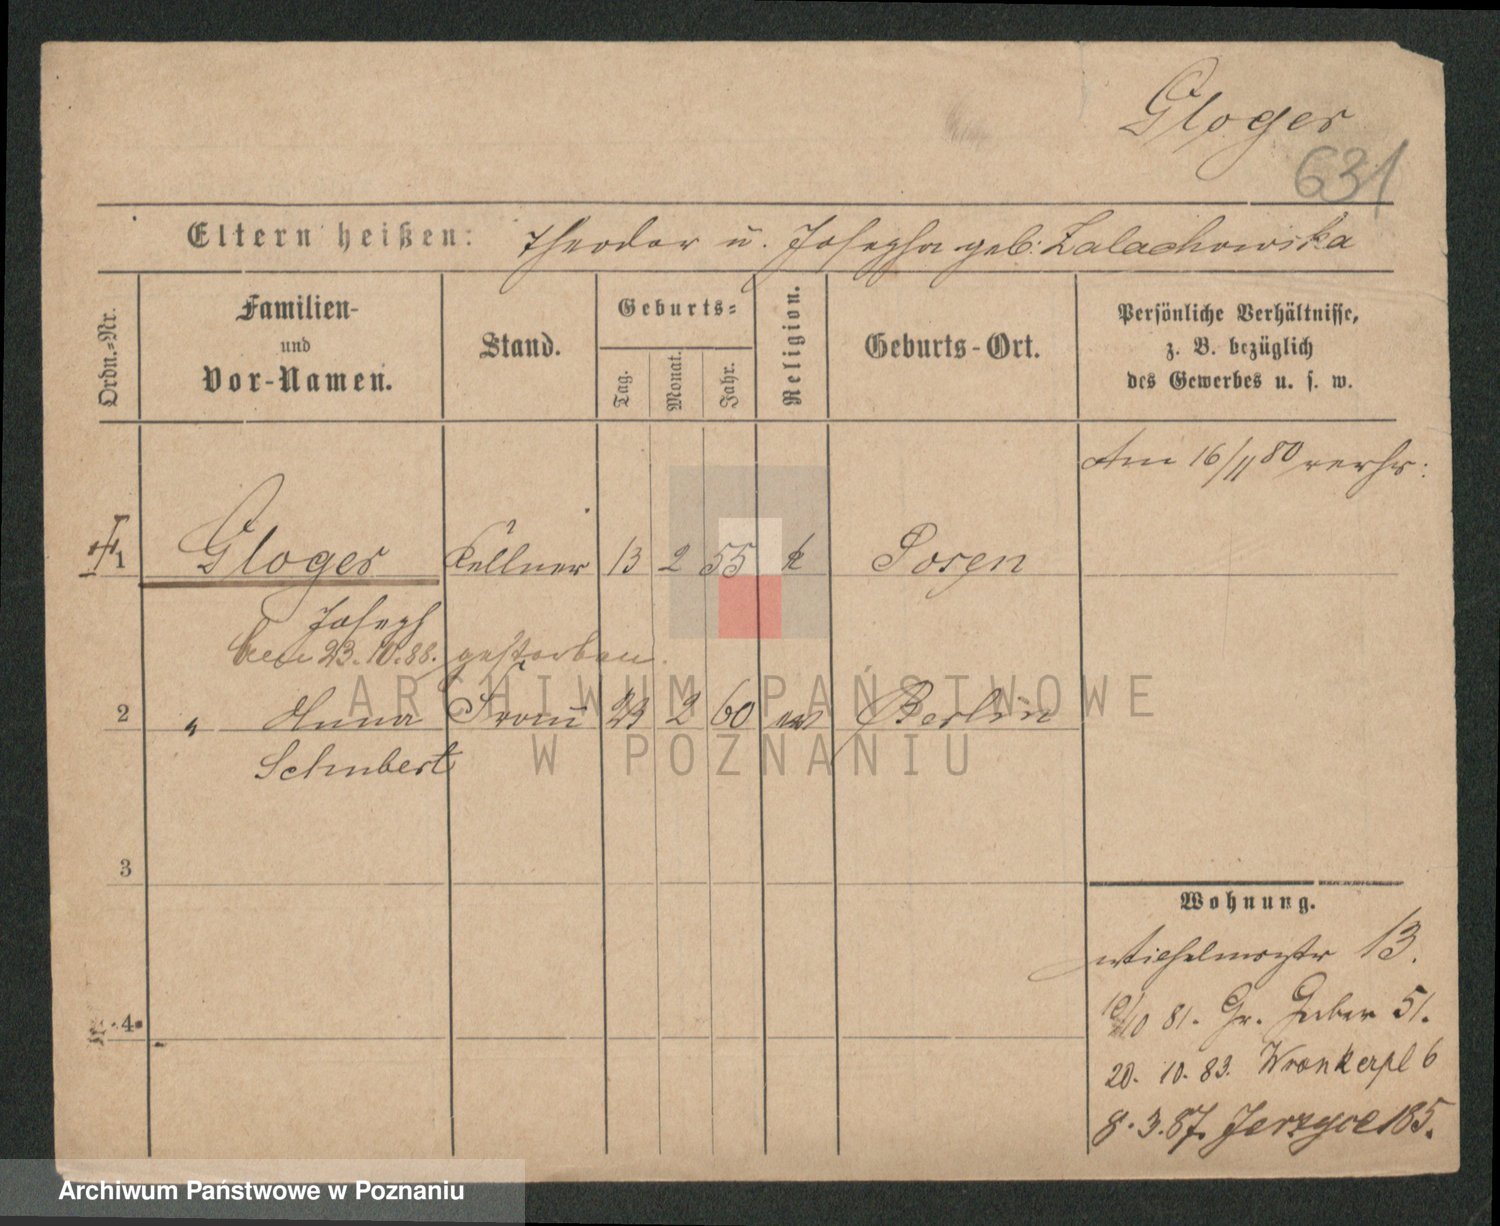 Gloger
631
Eltern heißen: Theodor u. Josepha geb: Zalachowska
Ordn.-Nr.
Familien-
und
Vor-Namen.
Stand.
Geburts-
Tag.
Monat.
Jahr.
Religion.
Geburts-Ort.
Persönliche Verhältnisse,
z. B. bezüglich
des Gewerbes u. s. w.
Am 16/11 80 verhr:
1 Gloger Kellner 13 2 55 k Posen
Joseph
den 23.10.88. gestorben.
2 " Anna Frau 23 2 60 Berlin
Schubert
3
4
Wohnung.
Wilhelmsstr 13.
/10 81. Gr. Gerber 51.
20. 10. 83. Wronkerpl 6
8.3.87. Jerzyce 185.
ARCHIWUM PAŃSTWOWE
W POZNANIU
Archiwum Państwowe w Poznaniu